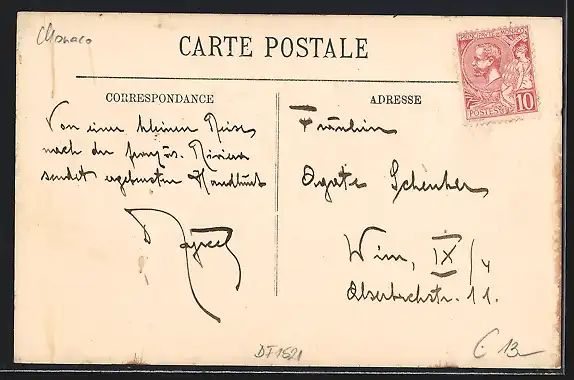 Monaco
CARTE POSTALE
PRINCIPAUTÉ DE MONACO
POSTES 10
CORRESPONDANCE
Von einer kleinen Reise
nach der französ. Riviera
sendet ergebensten Handkuss
ADRESSE
Fräulein
Agate Schenker
Wien, IX/4
11.
DT 1521
€ 13